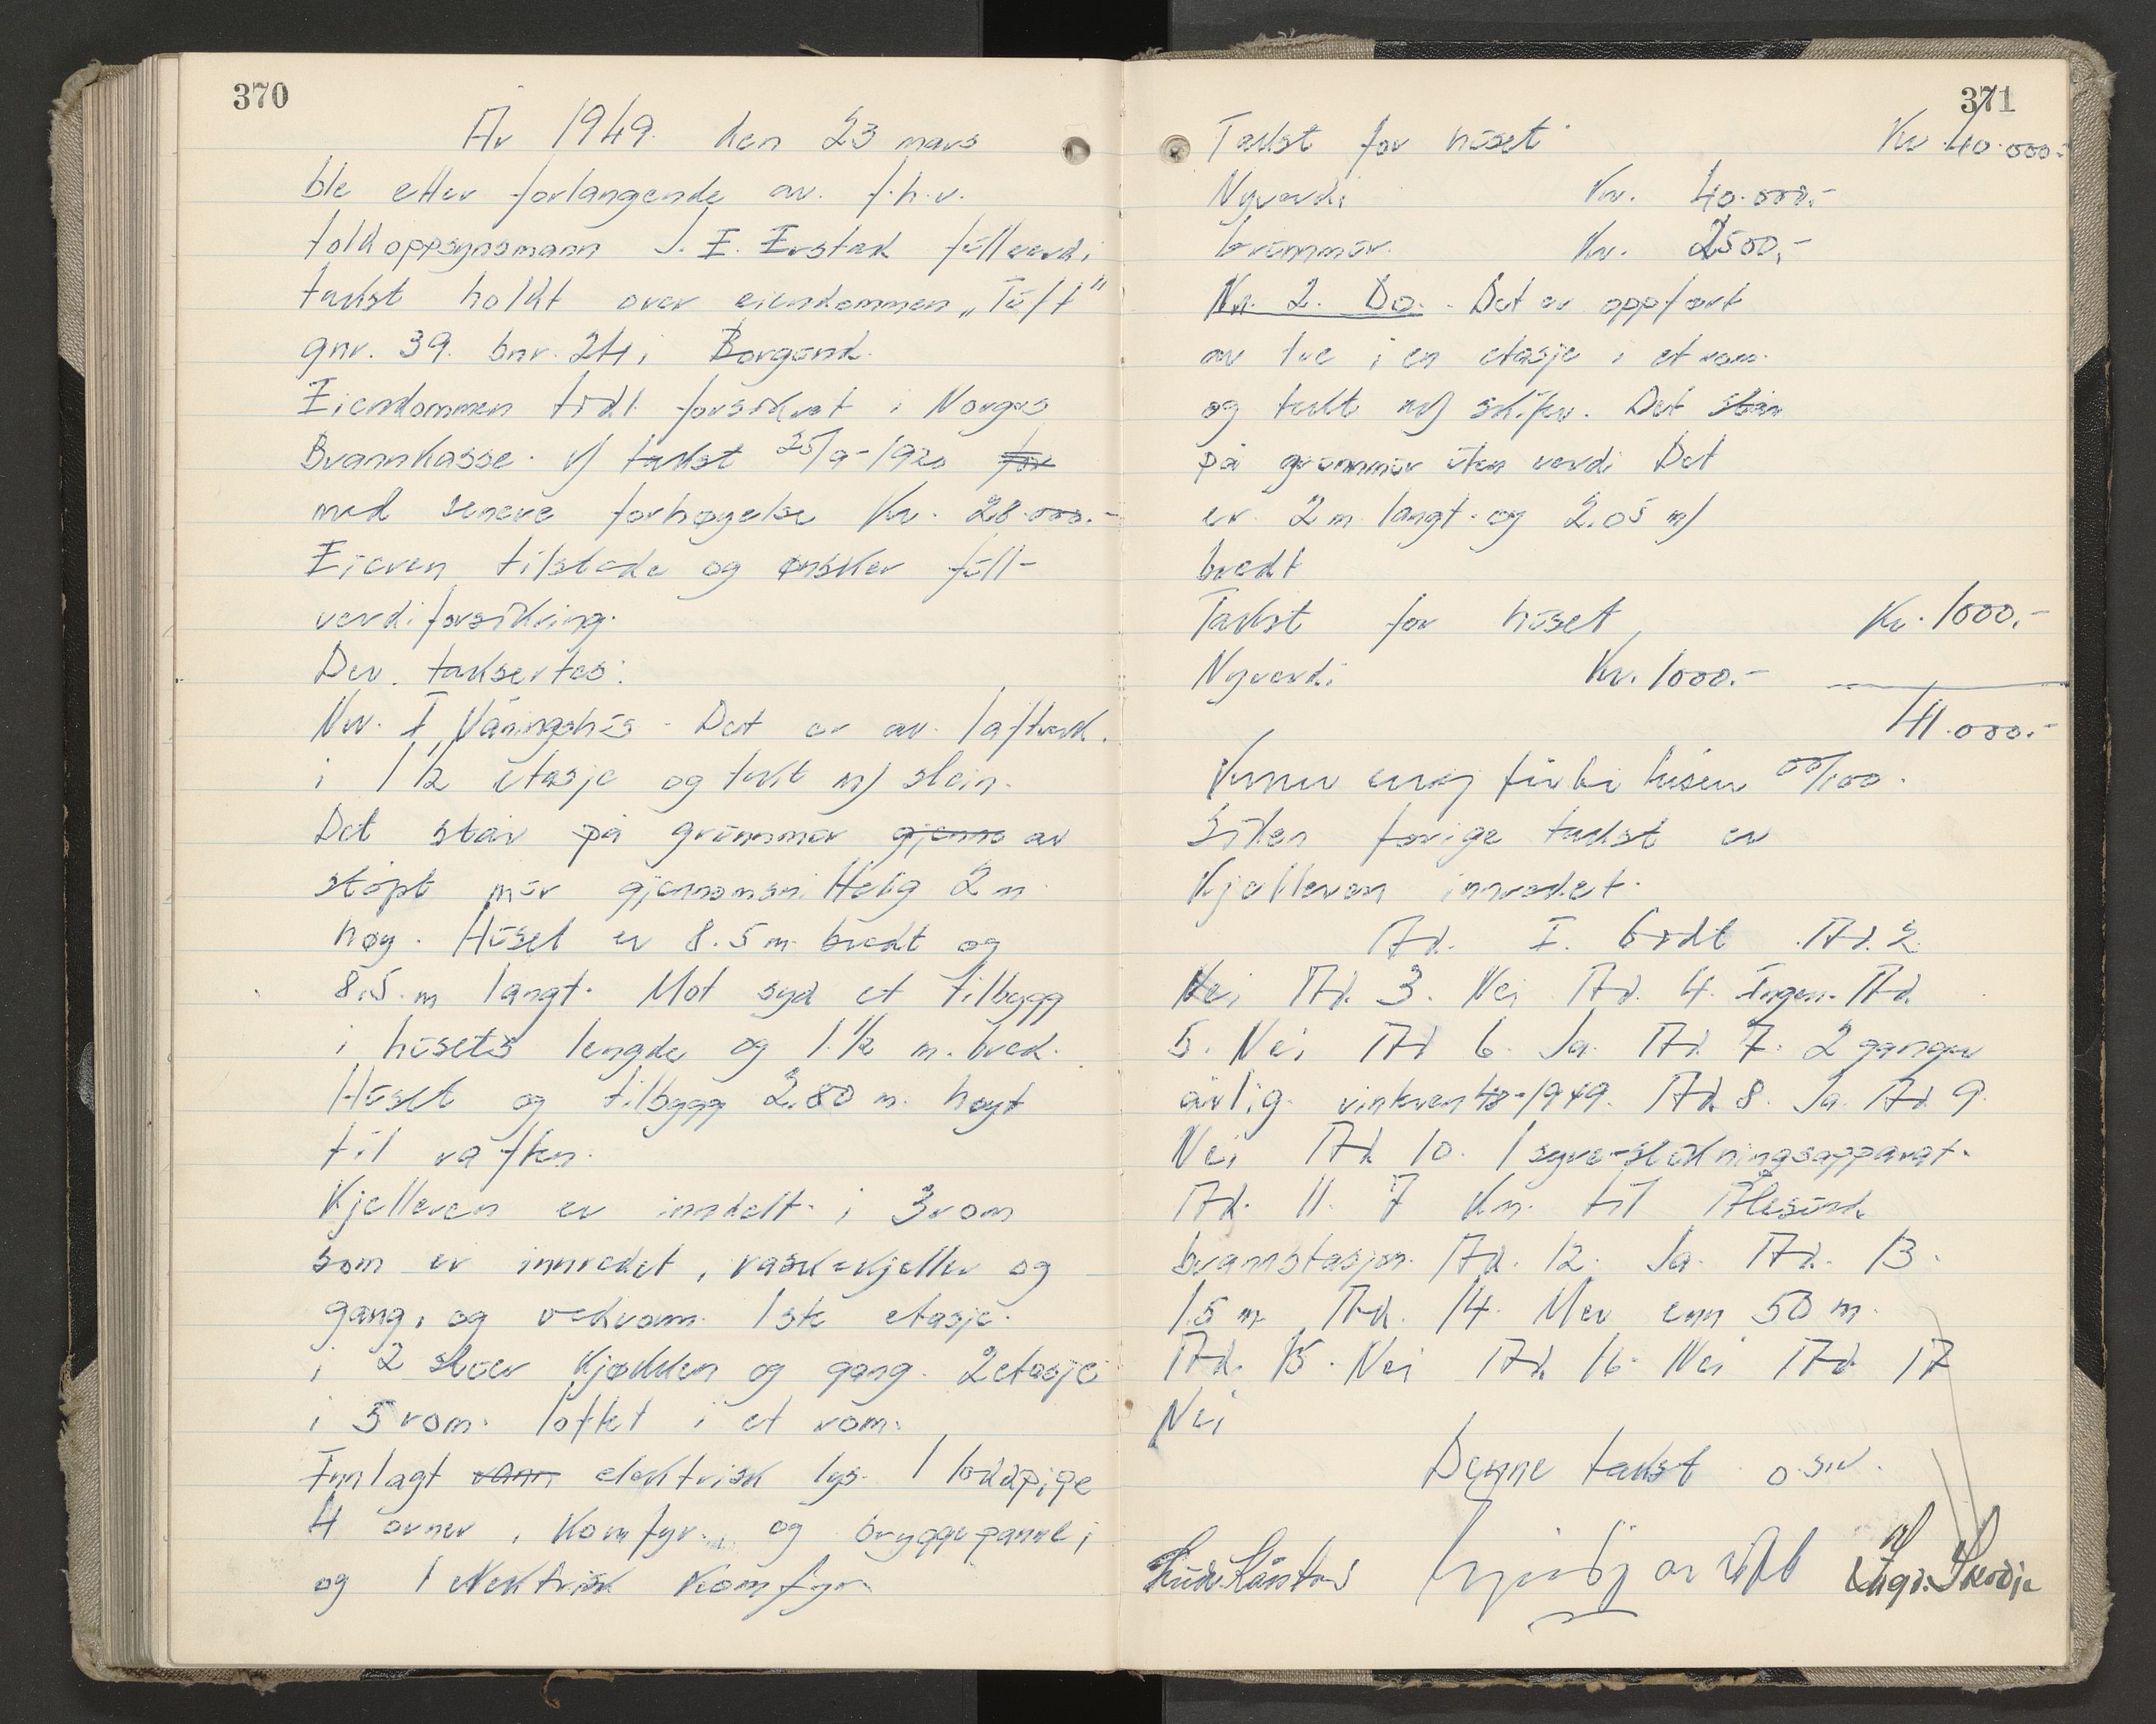 370
År 1949. den 23 mars
ble etter forlangende av. f.h.v.
toldoppsynsmann J. E. Erstad fullverdi
takst holdt over eiendommen „Tuft"
gnr. 39. bnr. 24 i Borgund.
Eiendommen tidl. forsikret i Norges
Brannkasse. v/ takst 25/9-1920 for
med senere forhøyelse Kr. 28.000.-
Eieren tilstede og ønsker full-
verdiforsikring.
Der. taksertes:
Nr. I Våningshus. Det er av. laftverk.
i 1 1/2 etasje og tekt m/ stein.
Det står på grunnmur gjenno av
støpt mur gjennomsnittelig 2 m
høy. Huset er 8.5 m. bredt og
8.5. m langt. Mot syd et tilbygg
i husets lengde og 1.1/2 m. bred.
Huset og tilbygg 2.80 m. høyt
til raften.
Kjelleren er inndelt. i 3 rom
som er innredet, vask=kjeller og
gang, og vedrom. 1ste etasje.
i 2 stuer kjøkken og gang. 2 etasje
i 5 rom. loftet i et rom.
Innlagt vann elektrisk lys. 1 loddpipe
4 ovner, Komfyr., og bryggepanne,
og 1 elektrisk komfyr
371
Takst for huset Kr 40.000.-
Nyverdi Kr. 40.000.-
Grunnmur. Kr. 2500,-
Nr. 2. Do. Det er oppført
av tre i en etasje i et rom.
og tekt m/ skifer. Det står
på grunnmur uten verdi Det
er 2 m langt. og 2.05 m/
bredt
Takst for huset Kr. 1000.-
Nyverdi Kr. 1000.-
41.000.-
husene 00/100.
Siden forige takst er
Kjelleren innredet.
Ad. I. bodt Ad. 2.
Nei Ad. 3. Nei Ad. 4. Ingen. Ad.
5. Nei Ad 6. Ja. Ad. 7. 2 ganger
årlig. vinteren 48-1949. Ad. 8. Ja. Ad 9.
Nei Ad 10. 1 syre-slukningsapparat.
Ad. 11. 7 Km. til Ålesund
brannstasjon. Ad. 12. Ja. Ad. 13.
15 m Ad. 14. Mer enn 50 m.
Ad. 15. Nei Ad. 16. Nei Ad 17
Nei
Denne takst o.s.v.
Skodje